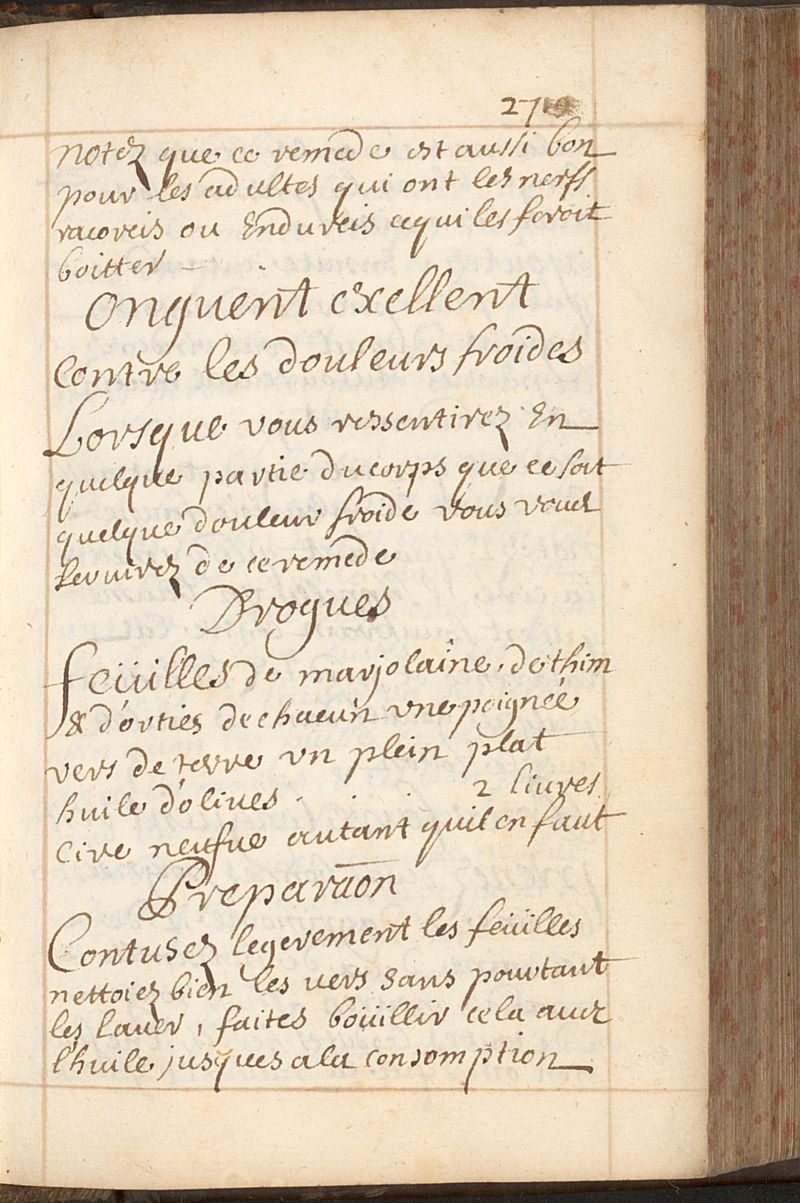 271
notez que ce remede est aussi bon
pour les adultes qui ont les nerfs
racorcis ou Endurcis cequi les feroit
boitter
Onguent exellent
Contre les douleurs froides
Lorsque vous ressentirez En
quelque partie du corps que ce soit
quelque douleur froide vous vous
servirez de ce remede
Drogues
feüilles de marjolaine, de thim
& d'orties de chacun une poignée
vers de terre un plein plat
huile d'olives . . . 2 livres
Cire neufue autant quil en faut
Preparãon
Contusez legerement les feüilles
nettoiez bien les vers sans pourtant
les laver, faites boüillir cela avec
l'huile jusques a la consomption